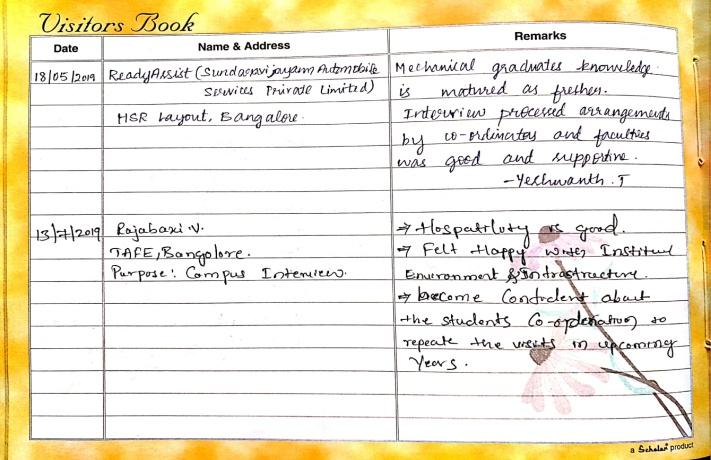 Visitors Book
Date
Name & Address
Remarks
18/05/2019
ReadyAssist (Sundaravijayam Automobile
Services Private Limited)
HSR Layout, Bangalore.
Mechanical graduates knowledge.
is matured as fresher.
Interview processed arrangements
by co-ordinators and faculties
was good and supportive.
- Yeshwanth. T
13/7/2019
V.
TAFE, Bangolore.
Purpose: Campus Interview.
→ is good.
→ Felt Happy
Environment & Infrastructure.
→ become Confident about
the students Co-operation to
repeate the visits in upcoming
Years.
a Scholar product